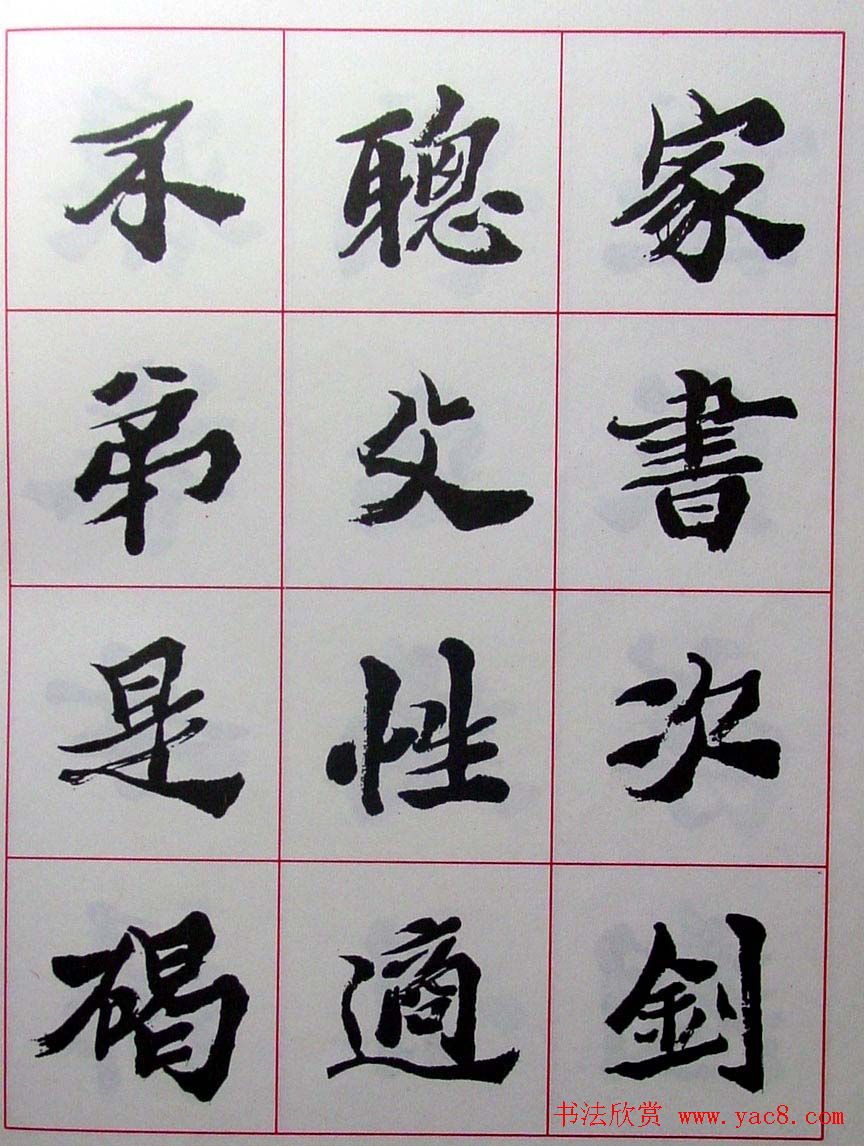 家書次釗
聰父性適
不弟是碣
书法欣赏 www.yac8.com